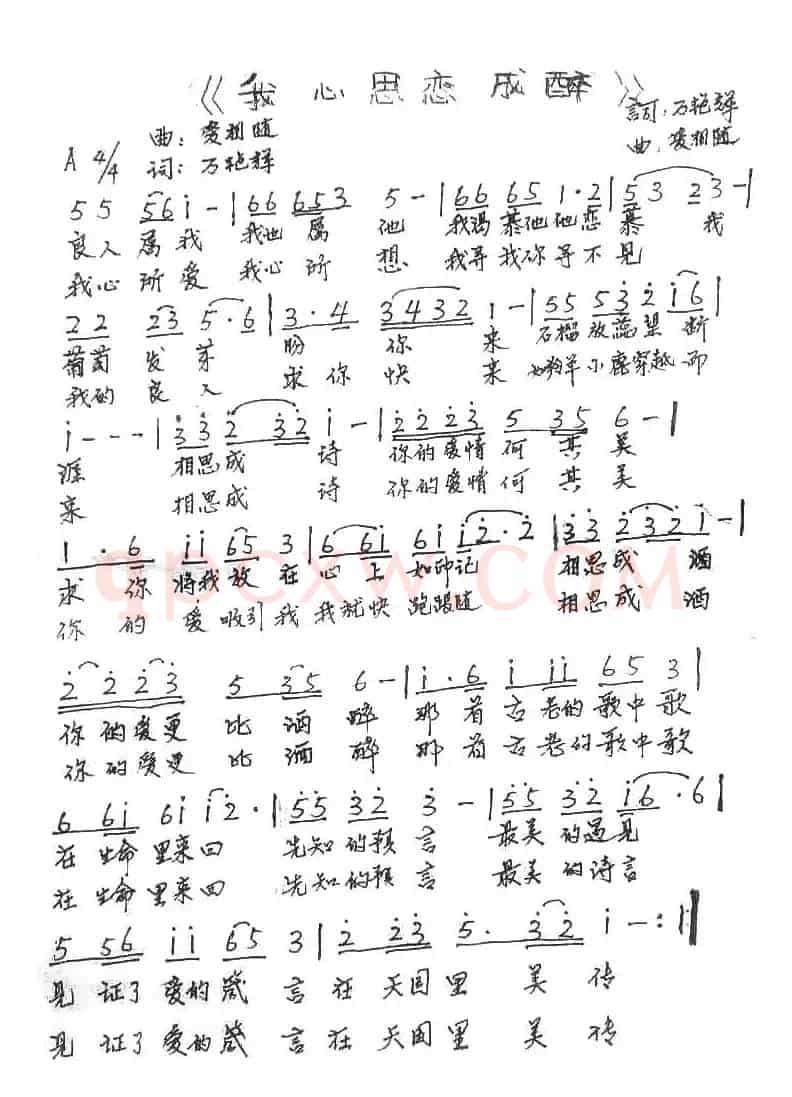 《我心思恋成醉》
曲：爱相随 詞：万艳辉
A 4/4 词：万艳辉 曲：爱相随
5 5 56 i - | 66 653 5 - | 66 65 1·2 | 53 23 - |
良人属我 我也属他 我渴慕他他恋慕我
我心所爱 我心所想 我寻我你寻不见
22 23 5·6 | 3·4 3432 1 - | 55 53 2 i6 |
葡萄发芽 盼你来 石榴放蕊望断
我的良人 求你快来 如羚羊小鹿穿越而
i - - - | 33 2 32 i - | 2223 5 35 6 - |
涯 相思成诗 你的爱情何其美
来 相思成诗 你的爱情何其美
1·6 ii 65 3 | 6 6i 6i i2·2 | 33 232 i - |
求你将我放在心上如印记 相思成酒
你的爱吸引我我就快跑跟随 相思成酒
2 2 2 3 5 35 6 - | i·6 i ii 65 3 |
你的爱更比酒醉 那首古老的歌中歌
你的爱更比酒醉 那首古老的歌中歌
6 6i 6i i2· | 55 32 3 - | 55 32 i6·6 |
在生命里来回 先知的預言 最美的遇见
在生命里来回 先知的預言 最美的诗言
5 56 ii 65 3 | 2 23 5· 32 i - :||
见证了爱的箴言在天国里美传
见证了爱的箴言在天国里美传
qpcxw.com